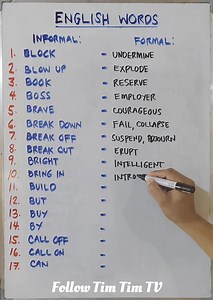 ENGLISH WORDS
INFORMAL: FORMAL:
1. BLOCK - UNDERMINE
2. BLOW UP - EXPLODE
3. BOOK - RESERVE
4. BOSS - EMPLOYER
5. BRAVE - COURAGEOUS
6. BREAK DOWN - FAIL, COLLAPSE
7. BREAK OFF - SUSPEND, ADJOURN
8. BREAK OUT - ERUPT
9. BRIGHT - INTELLIGENT
10. BRING IN - INTRO
11. BUILD -
12. BUT -
13. BUY -
14. BY -
15. CALL OFF -
16. CALL ON -
17. CAN -
Follow Tim Tim TV